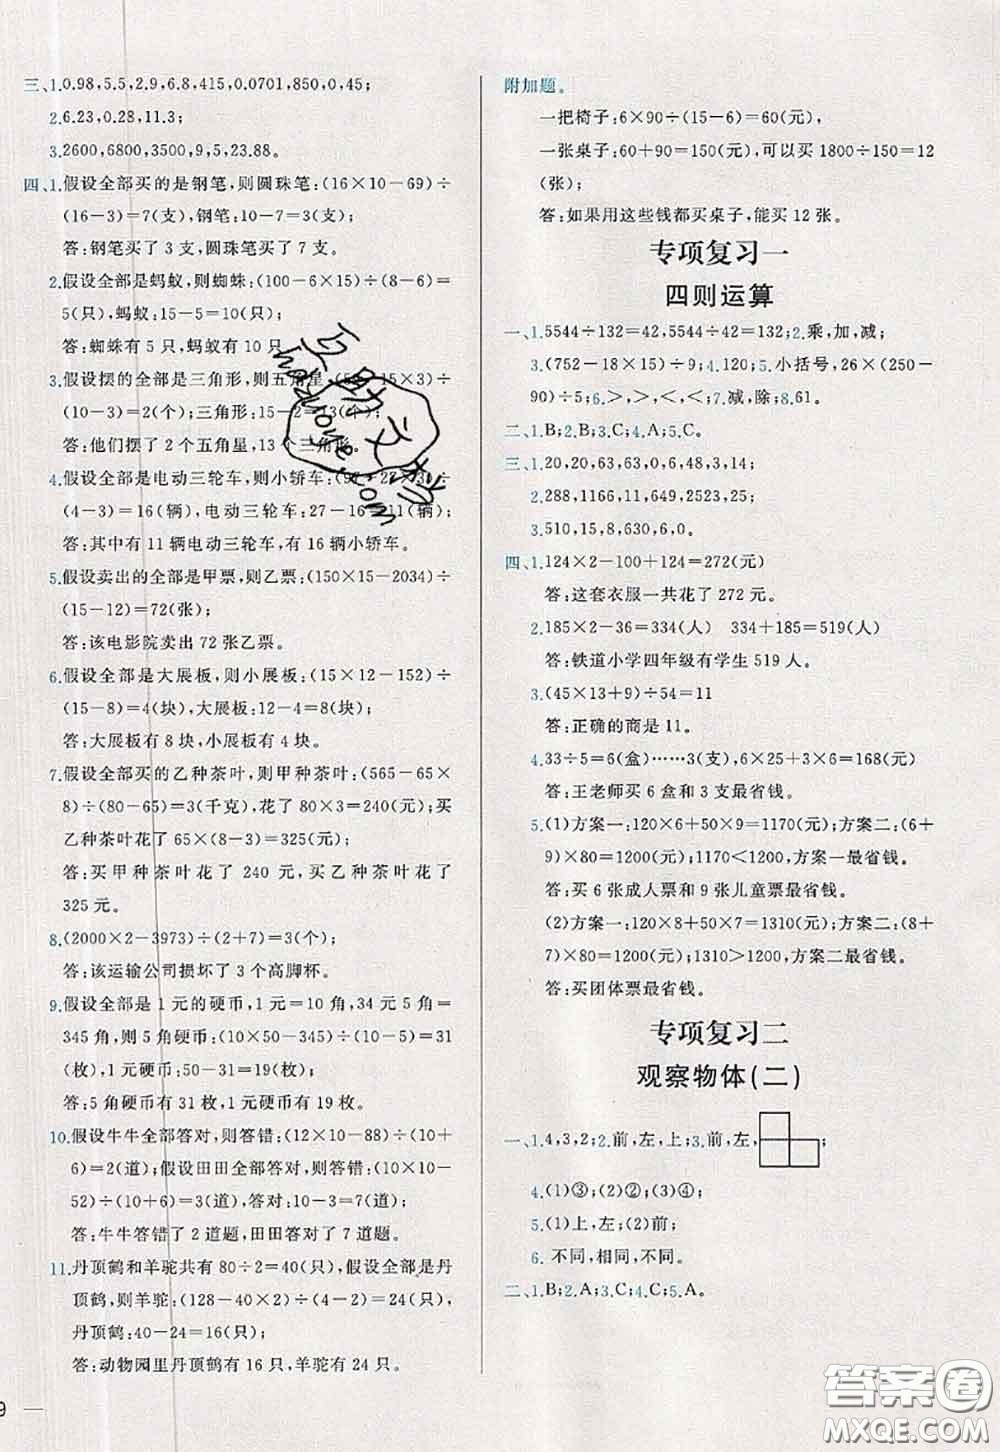 三、1.0.98,5.5,2.9,6.8,415,0.0701,850,0,45;
2.6.23,0.28,11.3;
3.2600,6800,3500,9,5,23.88。
四、1.假设全部买的是钢笔,则圆珠笔:(16×10-69)÷
(16-3)=7(支),钢笔:10-7=3(支);
答:钢笔买了 3 支,圆珠笔买了 7 支。
2.假设全部是蚂蚁,则蜘蛛:(100-6×15)÷(8-6)=
5(只),蚂蚁:15-5=10(只);
答:蜘蛛有 5 只,蚂蚁有 10 只
3.假设摆的全部是三角形,则五角星:(5 -15×3)÷
(10-3)=2(个);三角形:15-2=13(个);
答:他们摆了 2 个五角星,13 个三角形。
4.假设全部是电动三轮车,则小轿车:(97-27×3)÷
(4-3)=16(辆),电动三轮车:27-16=11(辆);
答:其中有 11 辆电动三轮车,有 16 辆小轿车。
5.假设卖出的全部是甲票,则乙票:(150×15-2034)÷
(15-12)=72(张);
答:该电影院卖出 72 张乙票。
6.假设全部是大展板,则小展板:(15×12-152)÷
(15-8)=4(块),大展板:12-4=8(块);
答:大展板有 8 块,小展板有 4 块。
7.假设全部买的乙种茶叶,则甲种茶叶:(565-65×
8)÷(80-65)=3(千克),花了 80×3=240(元),买
乙种茶叶花了 65×(8-3)=325(元);
答:买甲种茶叶花了 240 元,买乙种茶叶花了
325 元。
8.(2000×2-3973)÷(2+7)=3(个);
答:该运输公司损坏了 3 个高脚杯。
9.假设全部是 1 元的硬币,1 元=10 角,34 元 5 角=
345 角,则 5 角硬币:(10×50-345)÷(10-5)=31
(枚),1 元硬币:50-31=19(枚);
答:5 角硬币有 31 枚,1 元硬币有 19 枚。
10.假设牛牛全部答对,则答错:(12×10-88)÷(10+
6)=2(道);假设田田全部答对,则答错:(10×10-
52)÷(10+6)=3(道),答对:10-3=7(道);
答:牛牛答错了 2 道题,田田答对了 7 道题。
11.丹顶鹤和羊驼共有 80÷2=40(只),假设全部是丹
顶鹤,则羊驼:(128-40×2)÷(4-2)=24(只),
丹顶鹤:40-24=16(只);
答:动物园里丹顶鹤有 16 只,羊驼有 24 只。
9
附加题。
一把椅子:6×90÷(15-6)=60(元)
一张桌子:60+90=150(元),可以买 1800÷150=12
(张);
答:如果用这些钱都买桌子,能买 12 张。
专项复习一
四则运算
一、1.5544÷132=42,5544÷42=132;2.乘,加,减;
3.(752-18×15)÷9;4.120;5.小括号,26×(250-
90)÷5;6.>,>,<,<;7.减,除;8.61。
二、1.B;2.B;3.C;4.A;5.C。
三、1.20,20,63,63,0,48,3,14;
2.288,1166,11,649,2523,16;
3.510,15,8,630,6,0。
四、1.124×2-100+124=272(元)
答:这套衣服一共花了 272 元。
2.185×2-36=334(人) 334+185=519(人)
答:铁道小学四年级有学生 519 人。
3.(45×13+9)÷54=11
答:正确的商是 11。
4.33÷5=6(盒)……3(支),6×25+3×6=168(元)
答:王老师买 6 盒和 3 支最省钱。
5.(1)方案一:120×6+50×9=1170(元);方案二:(6+
9)×80=1200(元);1170<1200,方案一最省钱。
答:买 6 张成人票和 9 张儿童票最省钱。
(2)方案一:120×8+50×7=1310(元);方案二:(8+
7)×80=1200(元);1310>1200,方案二最省钱。
答:买团体票最省钱。
专项复习二
观察物体(二)
一、1.4,3,2;2.前,左,上;3.前,左,;
4.(1)③;(2)②;(3)④;
5.(1)上,左;(2)前;
6.不同,相同,不同。
二、1.B;2.A;3.C;4.C;5.A。
答案圈
MXQE.COM